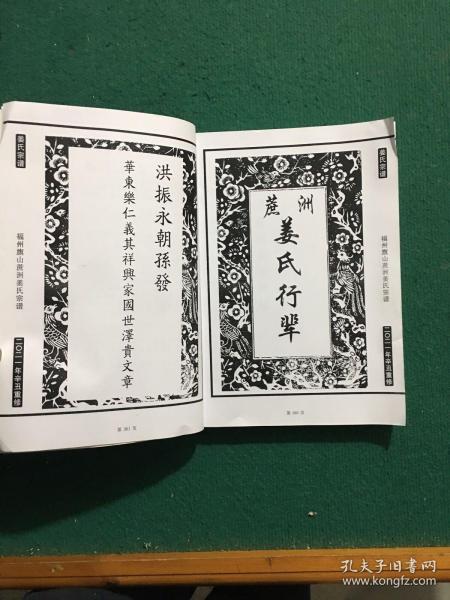 姜氏宗谱
福州旗山蔗洲姜氏宗谱
二〇二一年辛丑重修
蔗洲
姜氏行輩
第 380 页
洪振永朝孫發
華東樂仁義其祥興家國世澤貴文章
姜氏宗谱
福州旗山蔗洲姜氏宗谱
二〇二一年辛丑重修
第 381 页
孔夫子旧书网
www.kongfz.com